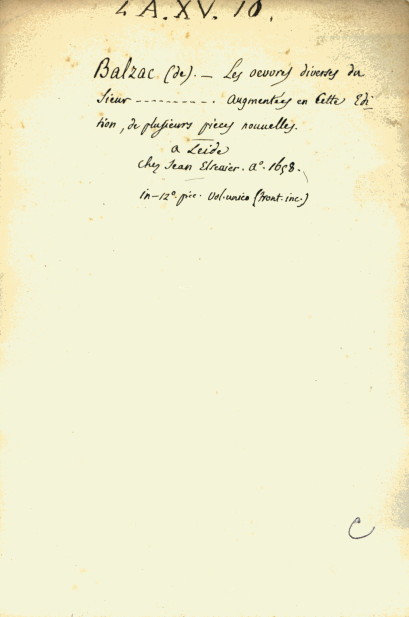 2 A.XV. 10.
Balzac (de). — Les oeuvres diverses du
Sieur ---------. Augmentées en Cette Edi
tion, de plusieurs pieces nouvelles.
a Leide
Chez Jean Elsevier. Aº. 1658.
in-12º. picc. Vol. unico (front. inc.)
C